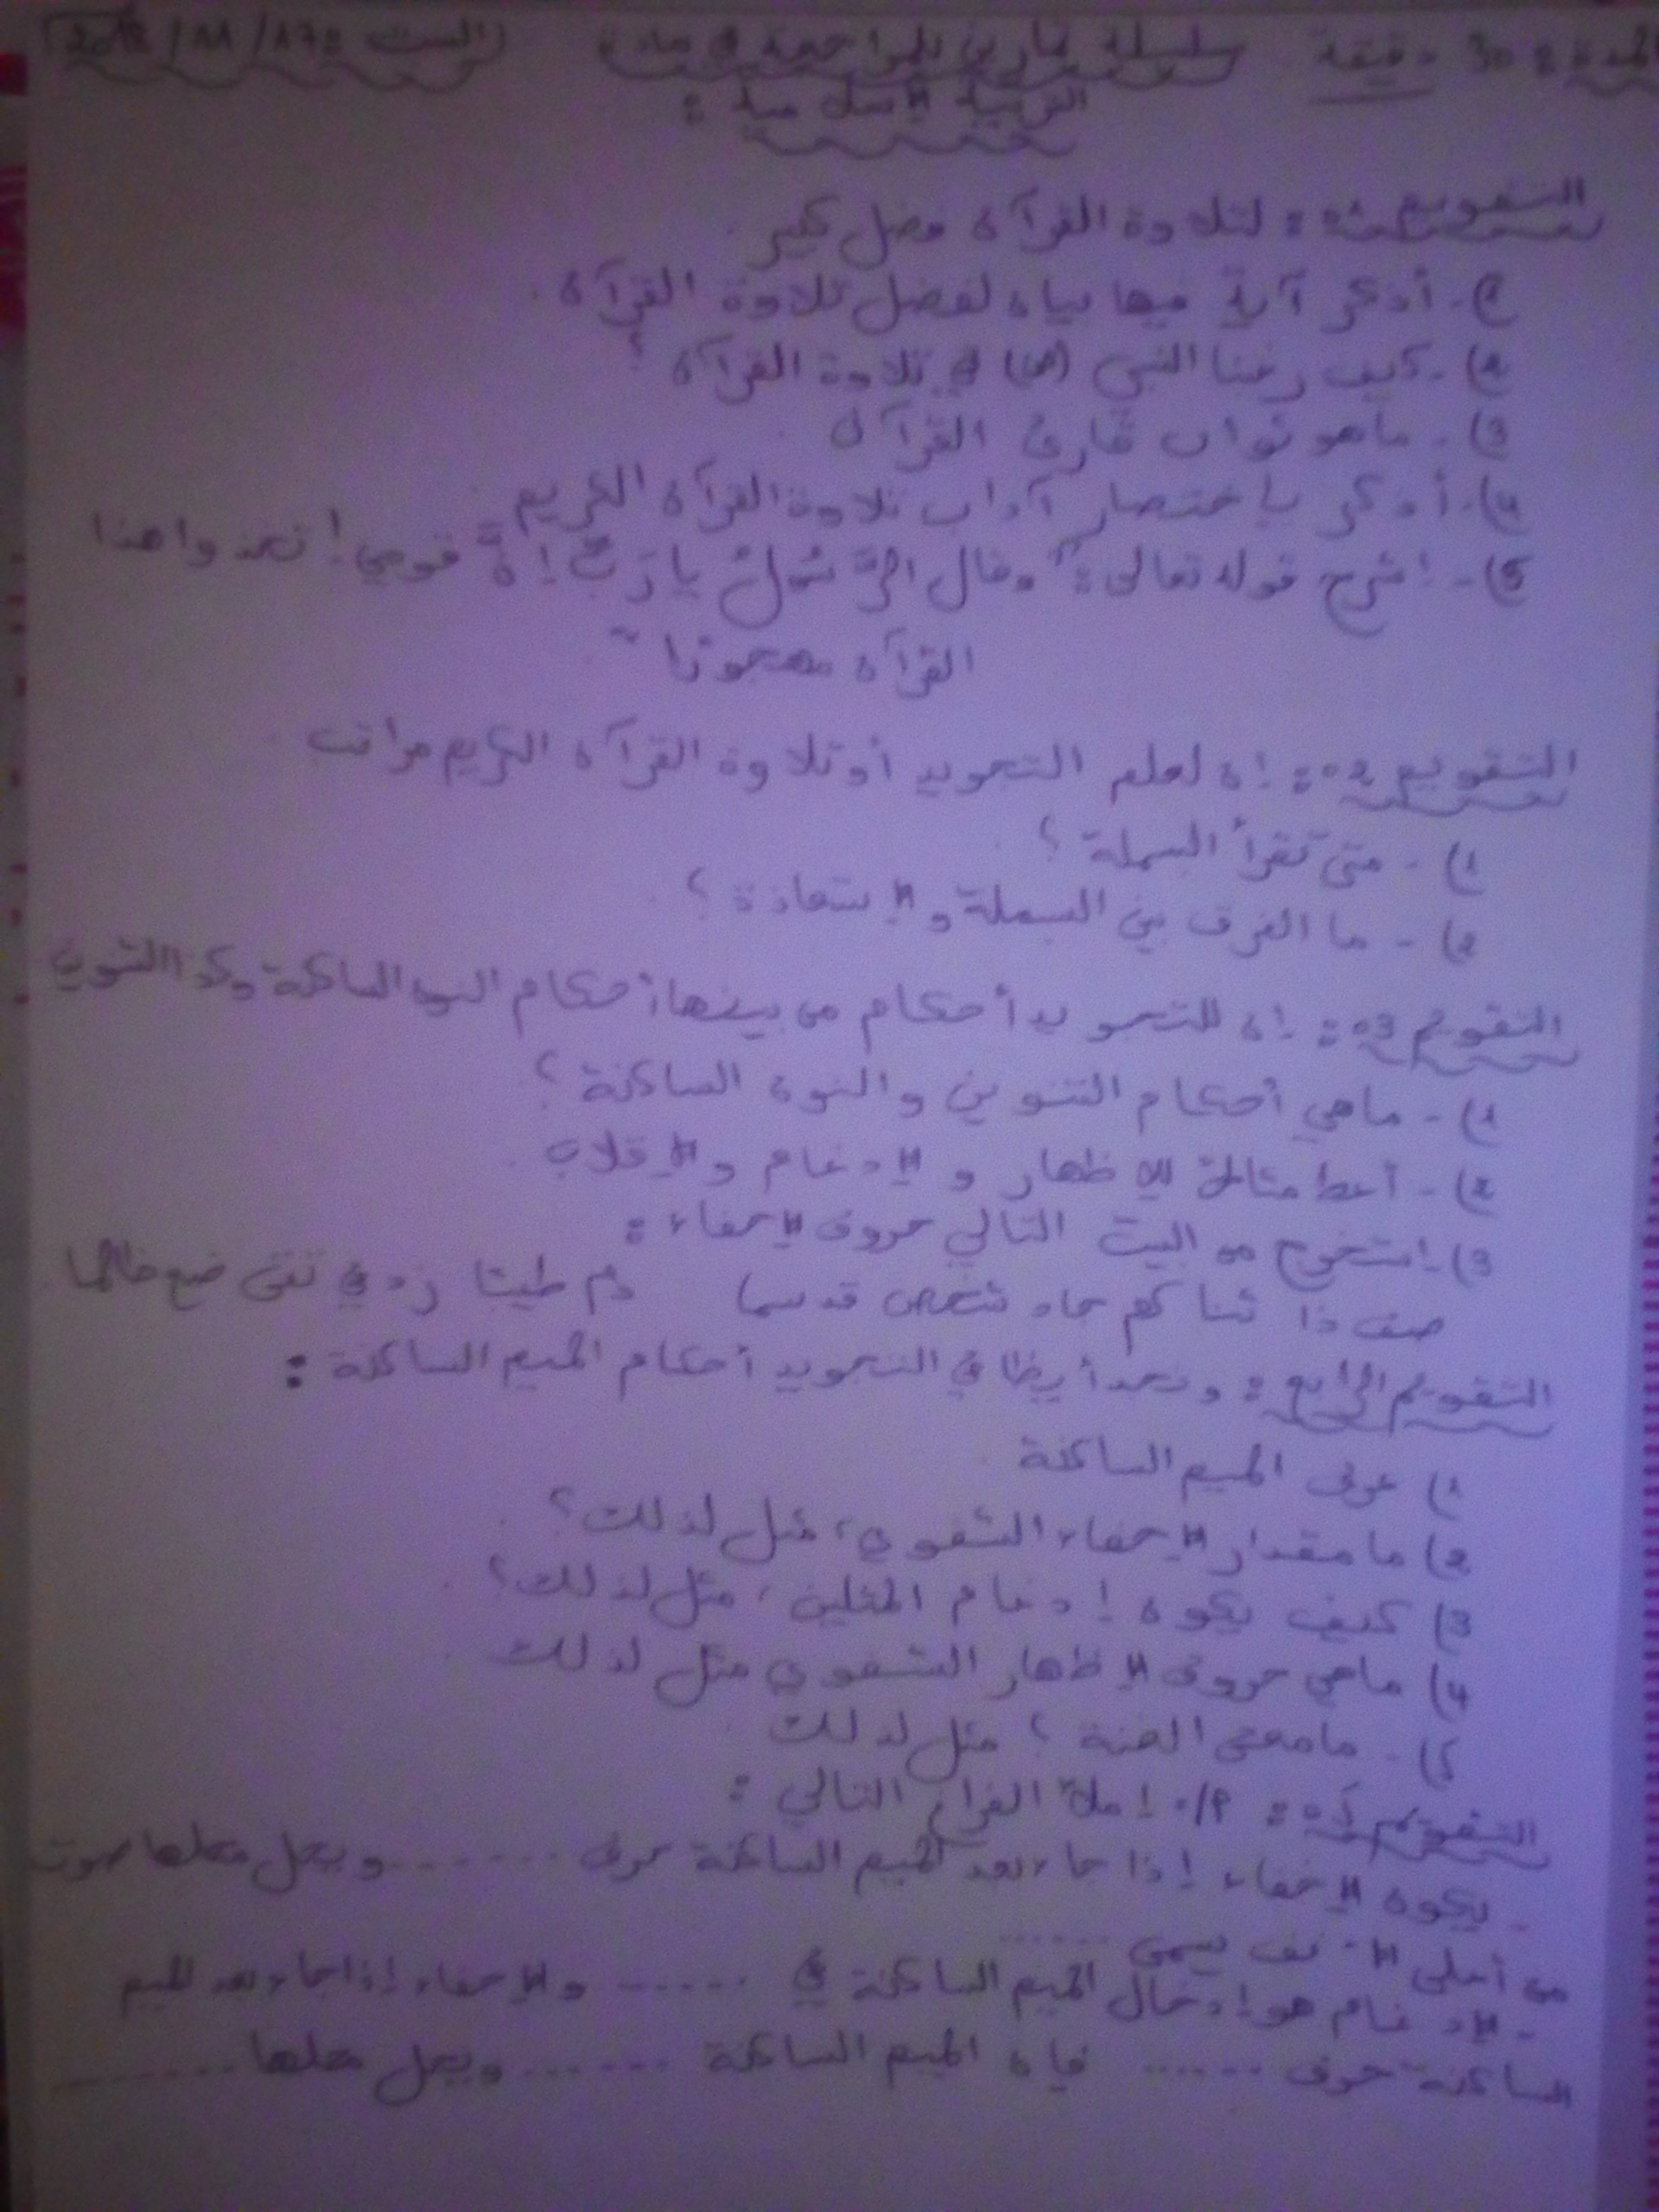 المدة : 30 دقيقة سلسلة تمارين للمراجعة في مادة (السبت 17 / 11 / 2018)
التربية الإسلامية :
التقويم 01 : لتلاوة القرآن فضل كبير .
1) - أذكر آية فيها بيان لفضل تلاوة القرآن .
2) - كيف رغبنا النبي (ص) في تلاوة القرآن ؟
3) - ماهو ثواب قارئ القرآن .
4) - أذكر بإختصار آداب تلاوة القرآن الكريم .
5) - إشرح قوله تعالى : " وقال الرّسُولُ يا رَبِّ إنّ قومي إتخذوا هذا
القرآن مهجورًا "
التقويم 02 : إن لعلم التجويد أو تلاوة القرآن الكريم مراتب .
1) - متى تقرأ البسملة ؟
2) - ما الفرق بين البسملة والإستعاذة ؟
التقويم 03 : إن للتجويد أحكام من بينها أحكام النون الساكنة وكذا التنوين
1) - ماهي أحكام التنوين والنون الساكنة ؟
2) - أعط مثالا للإظهار و الإدغام و الإقلاب .
3) - استخرج من البيت التالي حروف الإخفاء :
صف ذا ثنا كم جاد شخص قد سما دم طيبا زد في تقى ضع ظالما
التقويم الرابع : ونجد أيظا في التجويد أحكام الميم الساكنة :
1) عرف الميم الساكنة
2) ما مقدار الإخفاء الشفوي ، مثل لذلك ؟
3) كيف يكون إدغام المثلين ، مثل لذلك ؟
4) ماهي حروف الإظهار الشفوي مثل لذلك .
5) - مامعنى الغنة ؟ مثل لذلك
التقويم 05 : 1/- إملأ الفراغ التالي :
- يكون الإخفاء إذا جاء بعد الميم الساكنة حرف ....... ويحل محلها صوت
من أعلى الأنف يسمى ......
- الإدغام هو إدخال الميم الساكنة في ...... والإخفاء إذا جاء بعد الميم
الساكنة حرف ...... فإن الميم الساكنة ....... ويحل محلها ........